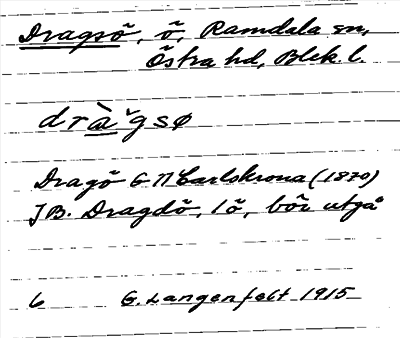 Dragsö, ö, Ramdala sn,
Östra hd, Blek. l.
dràˇgsø
Dragö G Π Carlskrona (1870)
JB. Dragdö, 1 ö, bör utgå
6 G. Langenfelt 1915